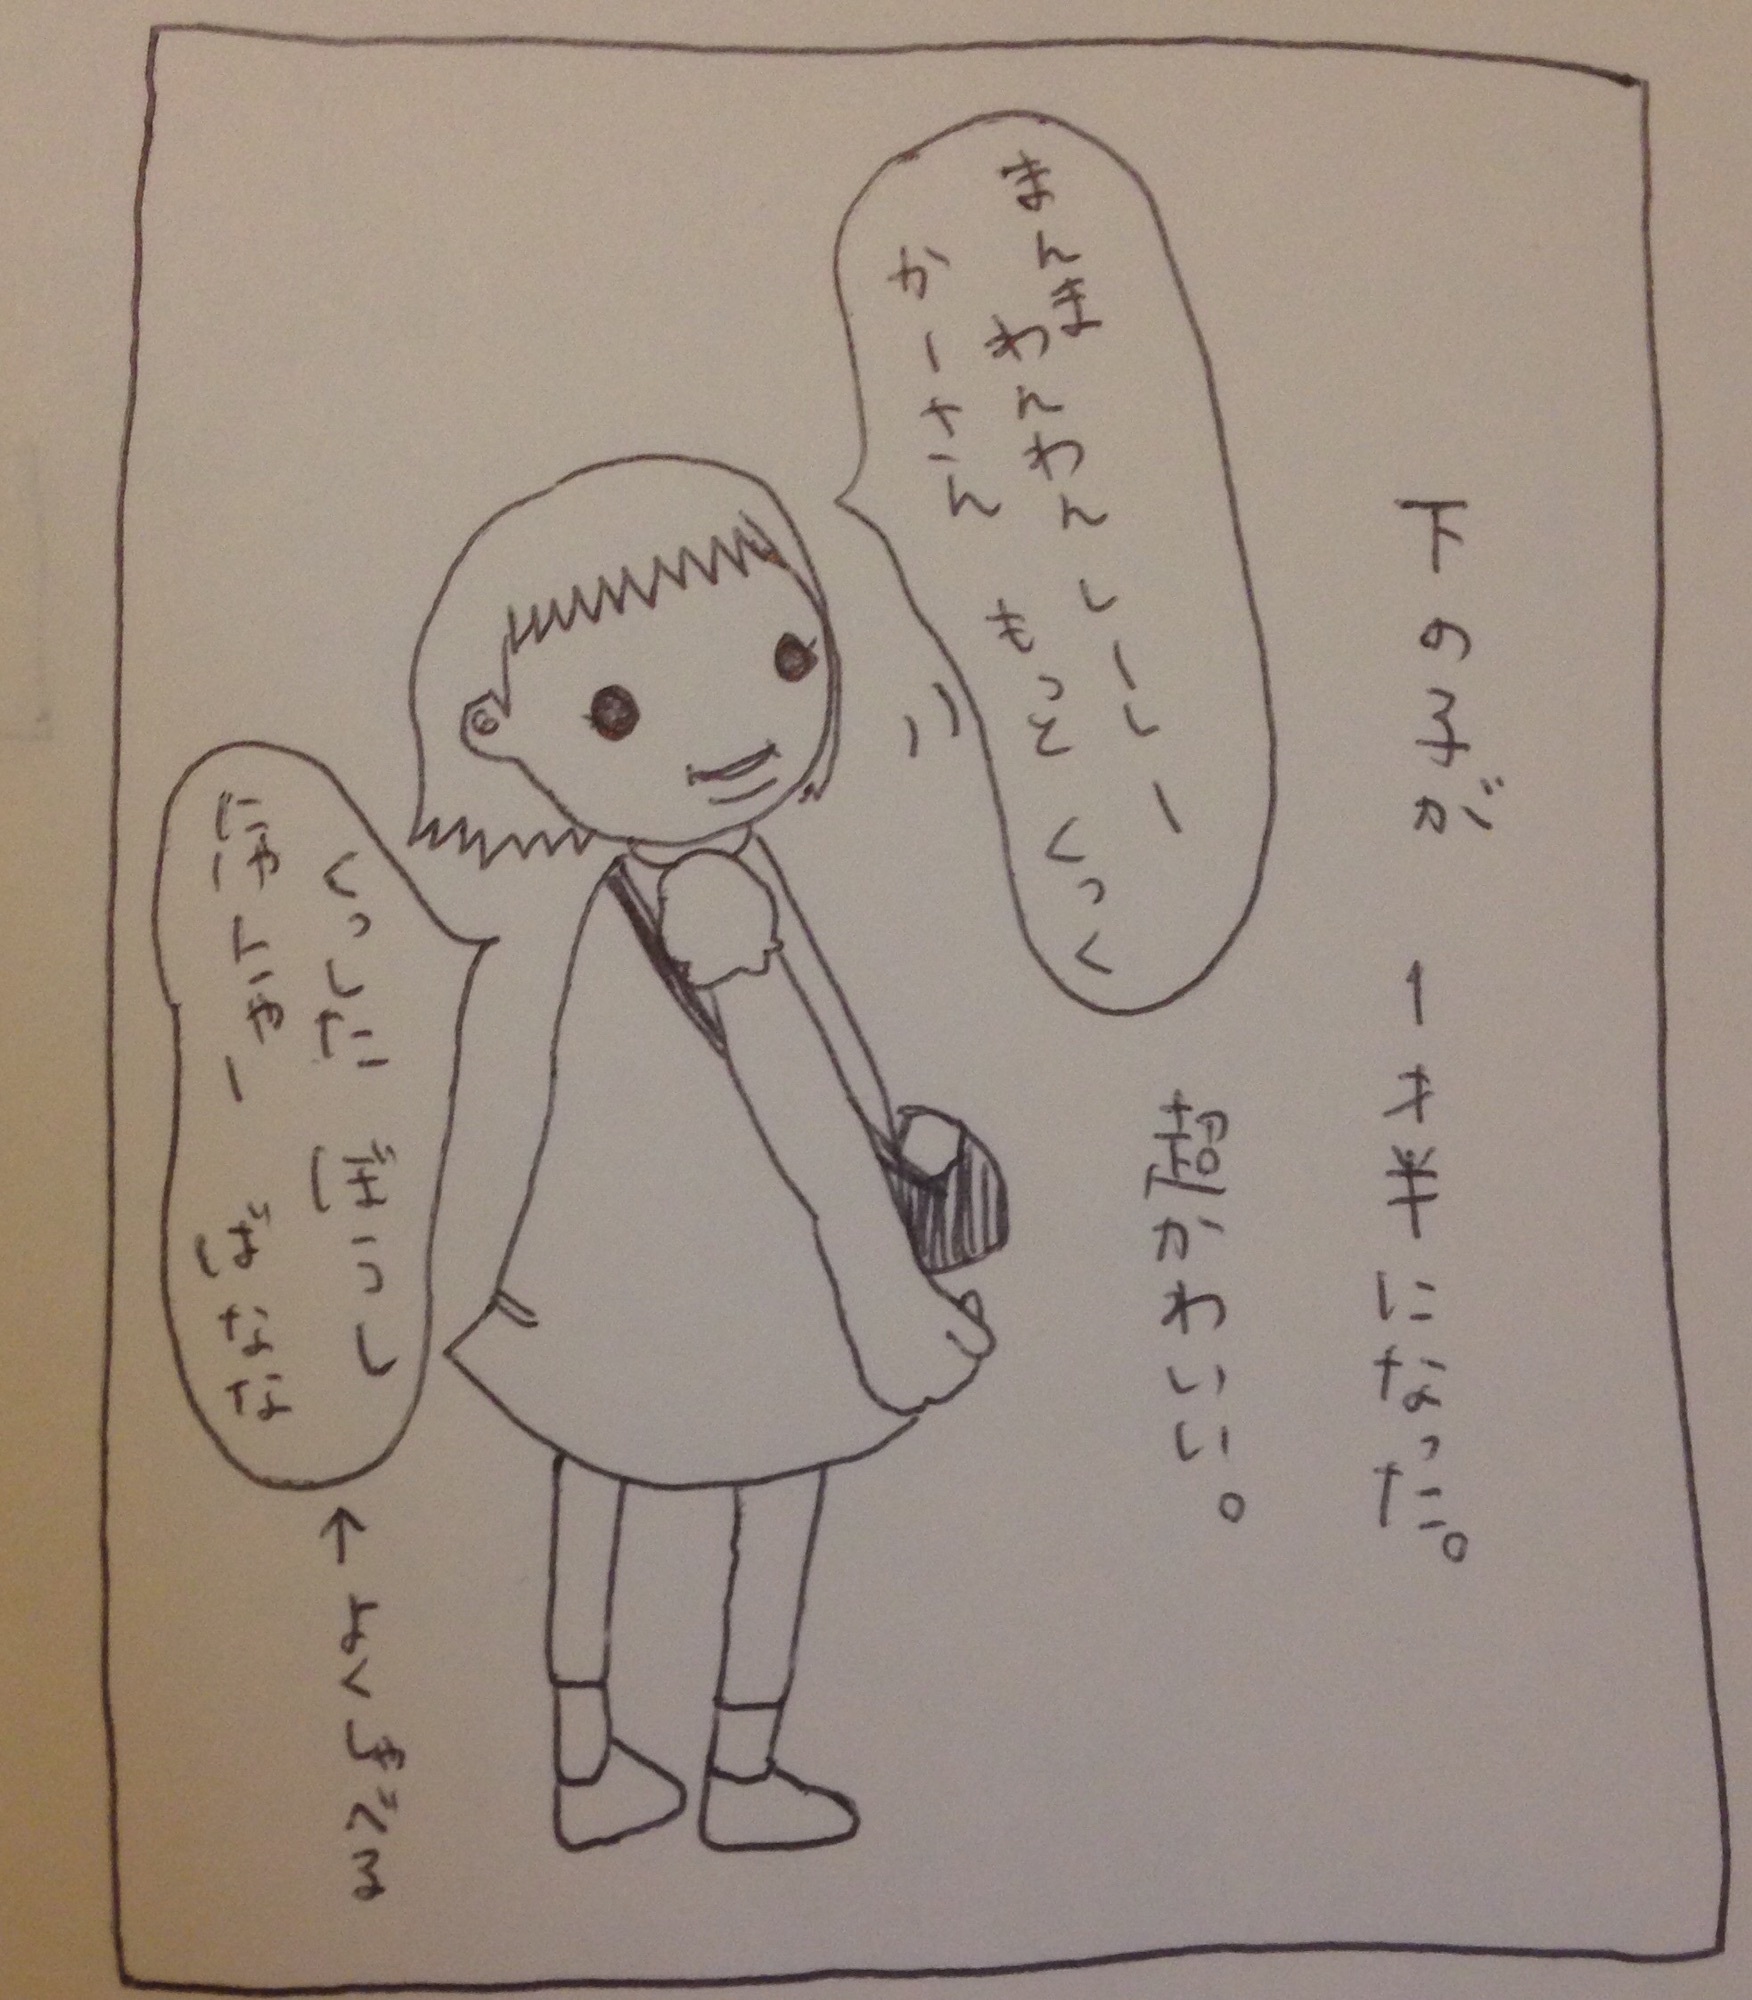 下の子が 1才半になった。
超かわいい。
まんま しーしー
わんわん くっく
かーさん もっと
くっした ぼうし
にゃんにゃー ばなな
↑よくしゃべる